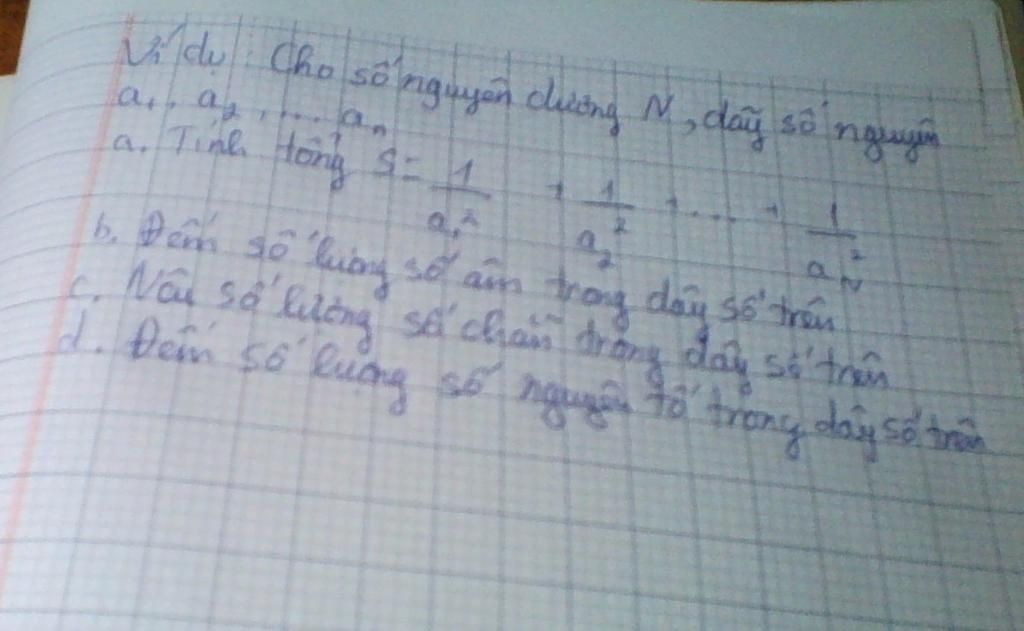 Ví dụ: Cho số nguyên dương N, dãy số nguyên
a₁, a₂, ... aₙ
a. Tính tổng S = 1/a₁² + 1/a₂² + ... + 1/a_N²
b. Đếm số lượng số âm trong dãy số trên
c. Nêu số lượng số chẵn trong dãy số trên
d. Đếm số lượng số nguyên tố trong dãy số trên